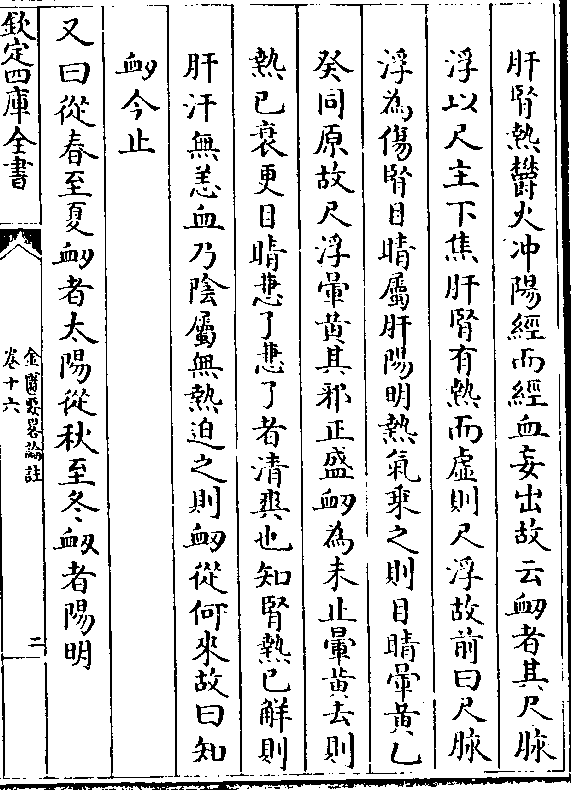 肝腎熱鬱火冲陽經而經血妄出故云衂者其尺脉
浮以尺主下焦肝腎有熱而虛則尺浮故前曰尺脉
浮為傷腎目睛屬肝陽明熱氣乗之則目睛暈黄乙
癸同原故尺浮暈黄其邪正盛衂為未止暈黄去則
熱已衰更目睛慧了慧了者清爽也知腎熱已解則
肝汗無恙血乃陰屬無熱迫之則衂從何來故曰知
衂今止
又曰從春至夏衂者太陽從秋至冬衂者陽明
欽定四庫全書
金匱要畧論註
卷十六
二